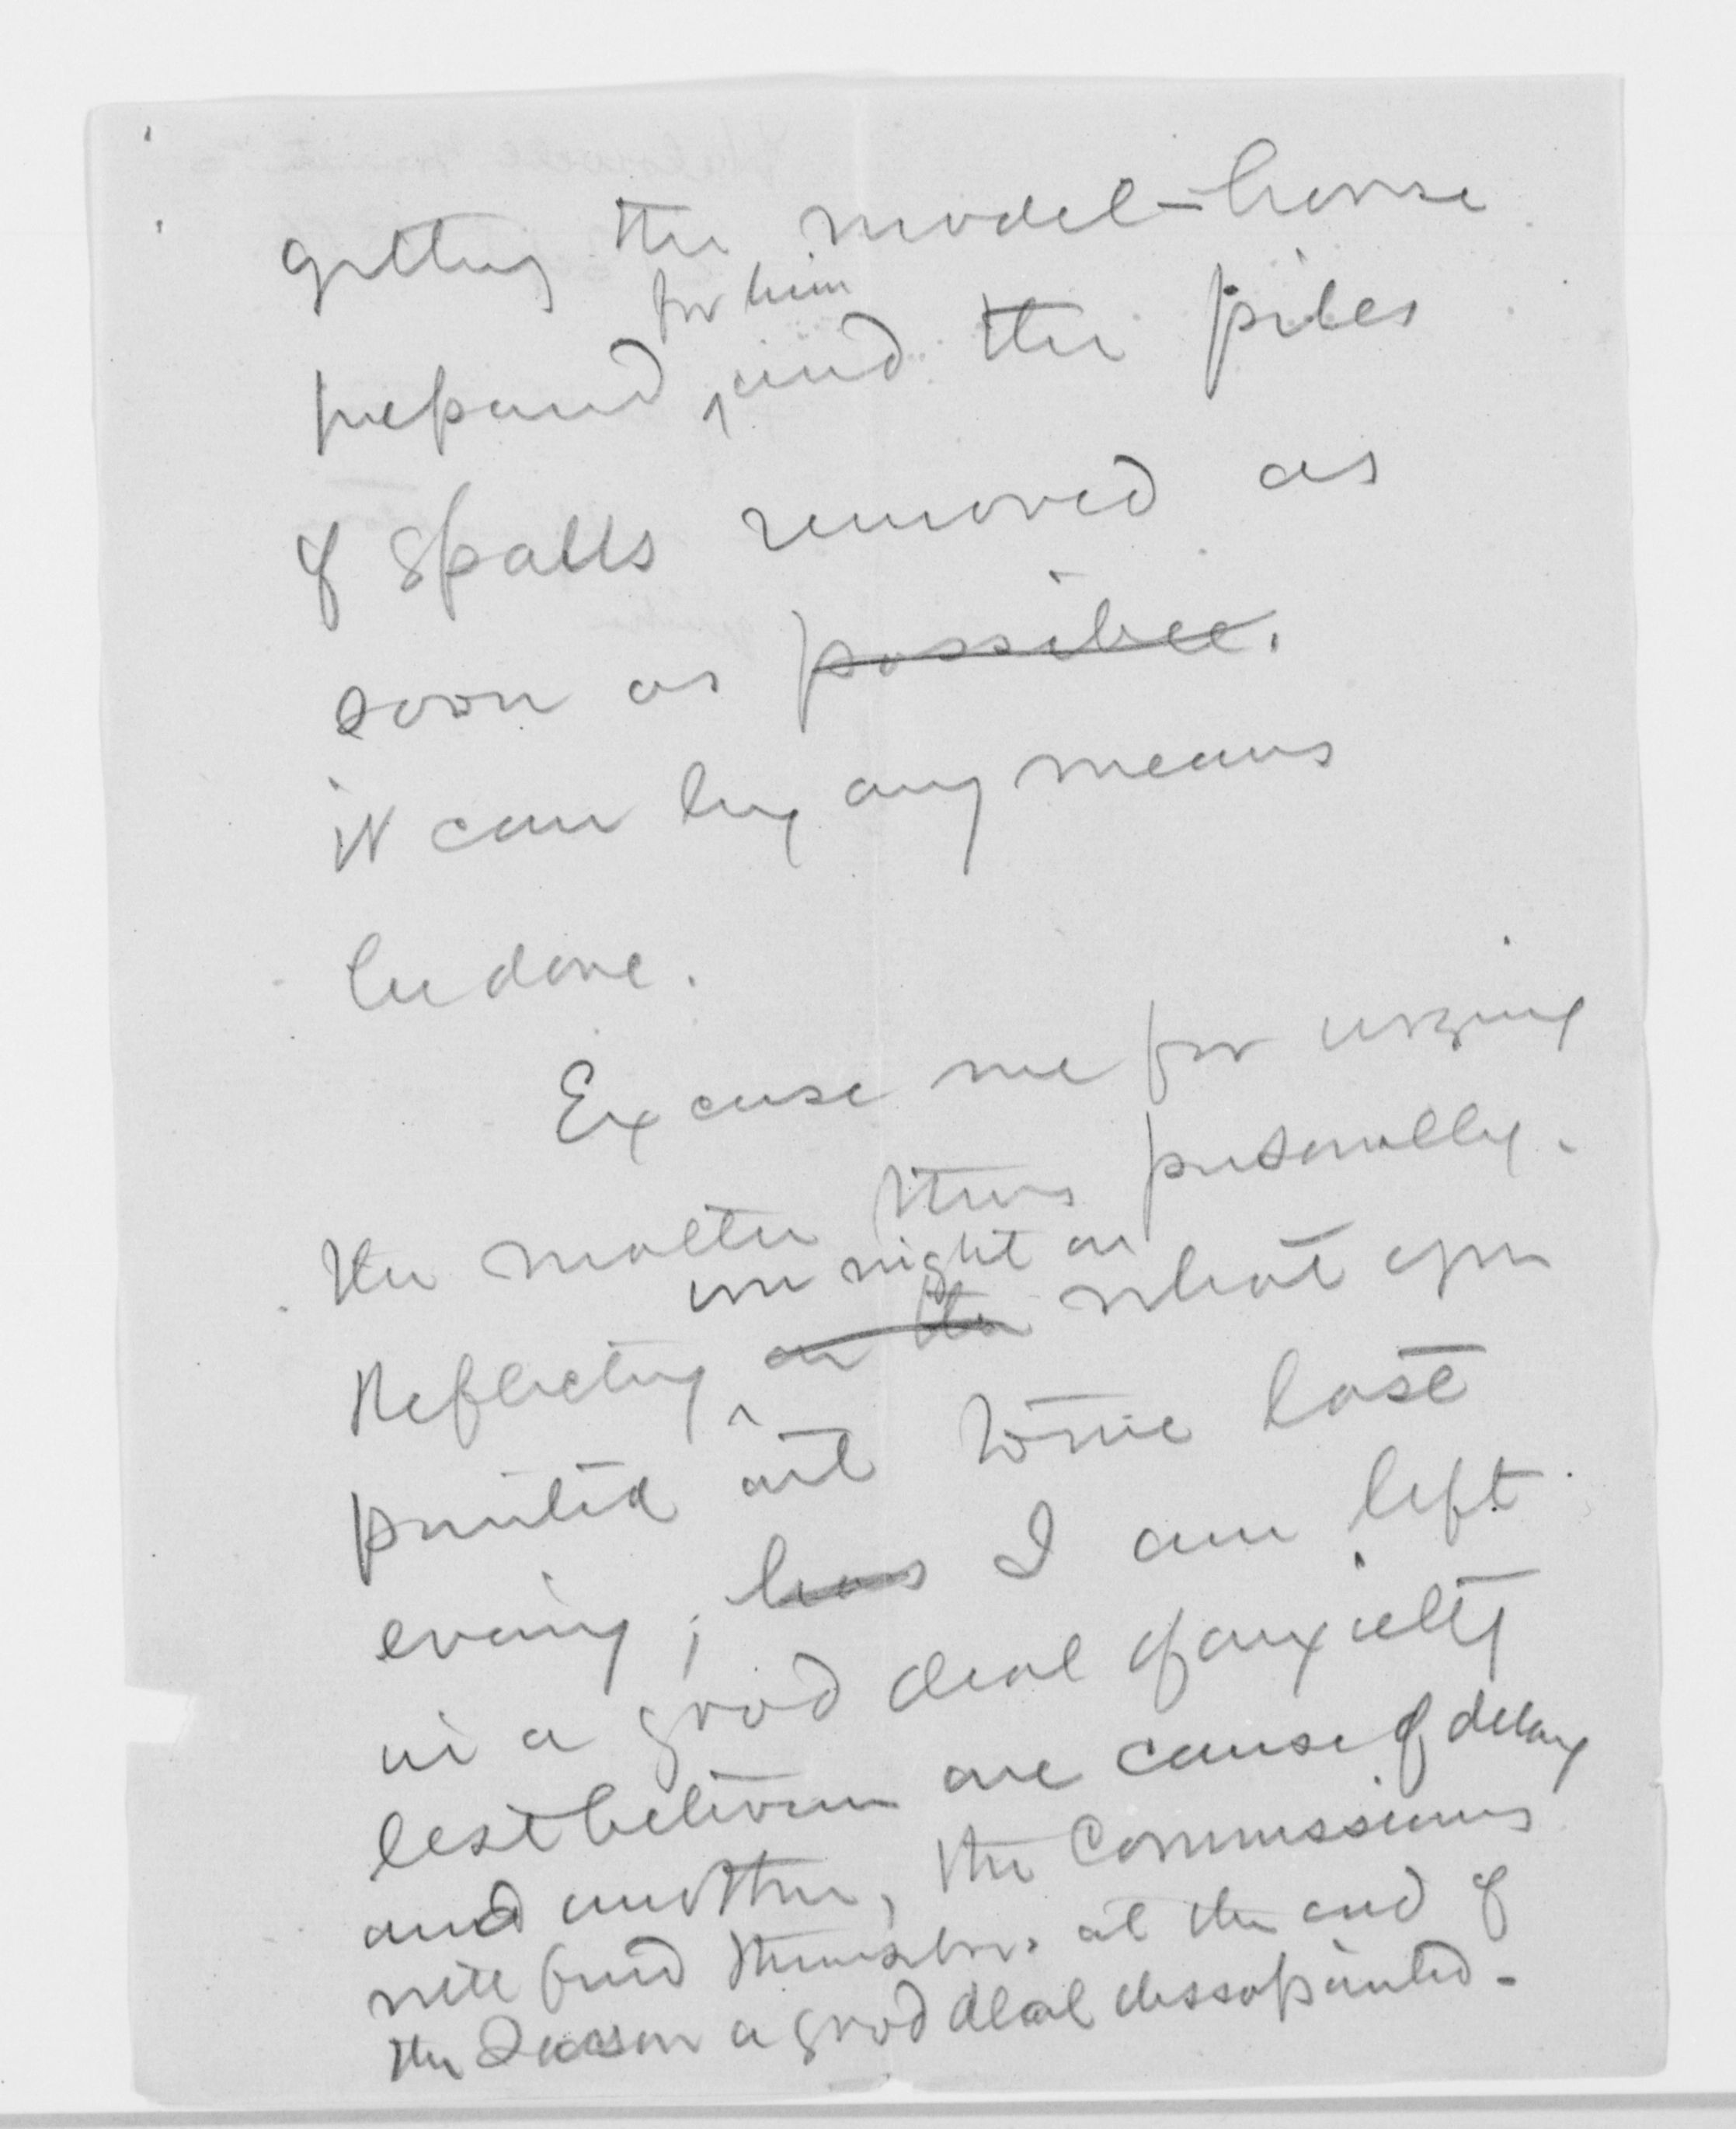 getting the model-house
for him
prepared, and the piles
of spalls removed as
soon as possible.
it can by any means
be done.
Excuse me for urging
the matter thus personally.
over night on
Reflecting on the what you
pointed out to me last
evening, has I am left
in a good deal of anxiety
lest between one cause of delay
and another, the Commissioners
will find themselves at the end of
the Season a good deal dissapointed.